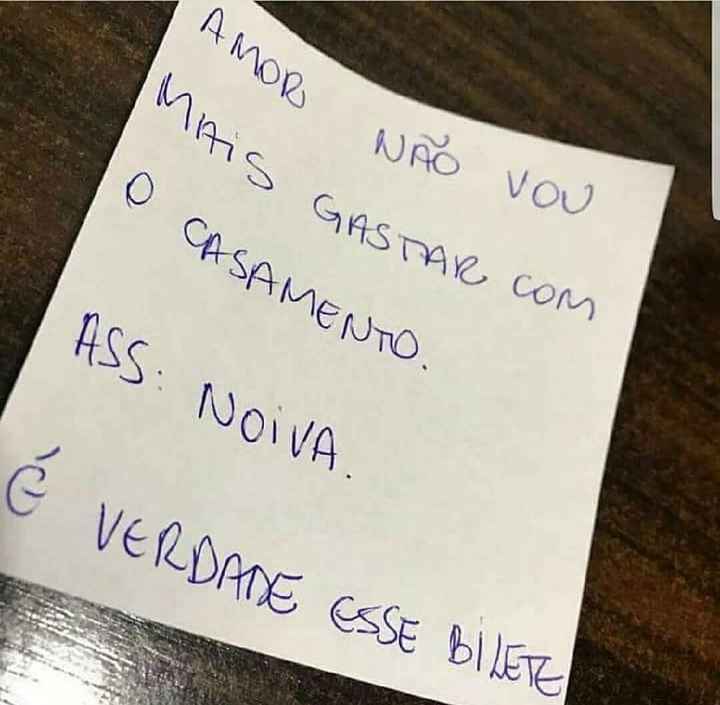 AMOR NÃO VOU
MAIS GASTAR COM
O CASAMENTO.
ASS: NOIVA.
É VERDADE ESSE BILETE